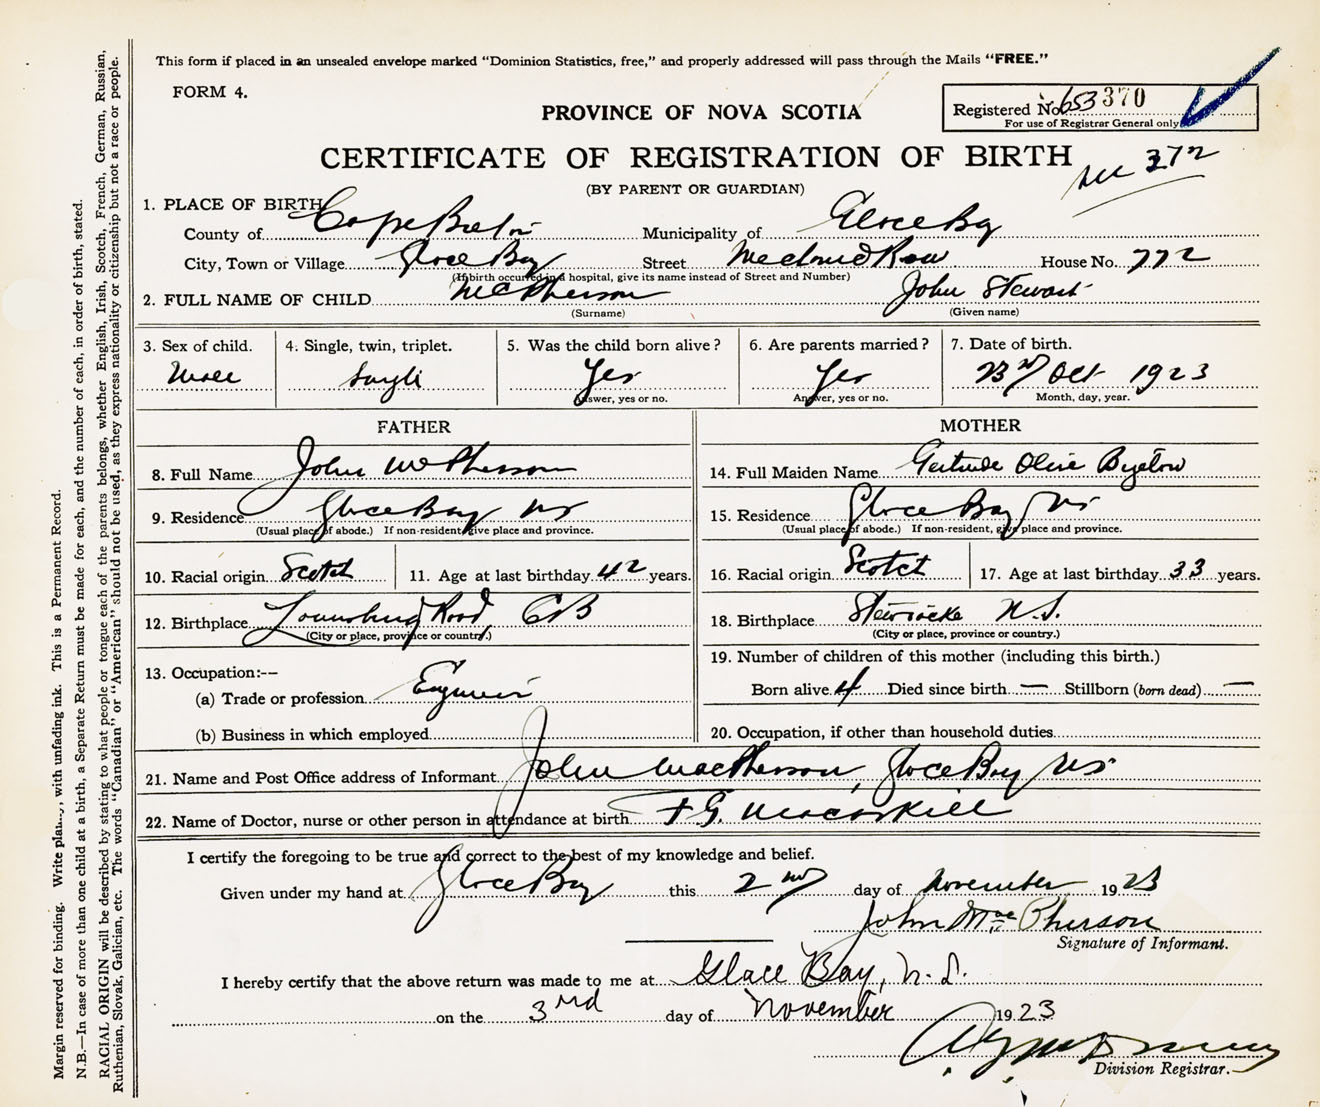 This form if placed in an unsealed envelope marked "Dominion Statistics, free," and properly addressed will pass through the Mails "FREE."
FORM 4.
PROVINCE OF NOVA SCOTIA
Registered No. 653370
For use of Registrar General only
CERTIFICATE OF REGISTRATION OF BIRTH
372
(BY PARENT OR GUARDIAN)
1. PLACE OF BIRTH
County of Cape Breton Municipality of Glace Bay
City, Town or Village Glace Bay Street Row House No. 772
(If birth occurred in a hospital, give its name instead of Street and Number)
2. FULL NAME OF CHILD McPherson John Stewart
(Surname) (Given name)
3. Sex of child. 4. Single, twin, triplet. 5. Was the child born alive? 6. Are parents married? 7. Date of birth.
Male Single Yes Yes 23rd Oct 1923
Answer, yes or no. Answer, yes or no. Month, day, year.
FATHER
8. Full Name John McPherson
9. Residence Glace Bay NS
(Usual place of abode.) If non-resident, give place and province.
10. Racial origin Scotch 11. Age at last birthday 42 years.
12. Birthplace Road, CB
(City or place, province or country.)
13. Occupation:--
(a) Trade or profession Engineer
(b) Business in which employed
MOTHER
14. Full Maiden Name Gertrude Olive Bigelow
15. Residence Glace Bay NS
(Usual place of abode.) If non-resident, give place and province.
16. Racial origin Scotch 17. Age at last birthday 33 years.
18. Birthplace Stewiacke N.S.
(City or place, province or country.)
19. Number of children of this mother (including this birth.)
Born alive 4 Died since birth — Stillborn (born dead) —
20. Occupation, if other than household duties
21. Name and Post Office address of Informant John MacPherson, Glace Bay NS
22. Name of Doctor, nurse or other person in attendance at birth F G. Macaskill
I certify the foregoing to be true and correct to the best of my knowledge and belief.
Given under my hand at Glace Bay this 2nd day of November 1923
John MacPherson
Signature of Informant.
I hereby certify that the above return was made to me at Glace Bay, N.S.
on the 3rd day of November 1923
Division Registrar.
Margin reserved for binding. Write , with unfading ink. This is a Permanent Record.
N.B.—In case of more than one child at a birth, a Separate Return must be made for each, and the number of each, in order of birth, stated.
RACIAL ORIGIN will be described by stating to what people or tongue each of the parents belongs, whether English, Irish, Scotch, French, German, Russian,
Ruthenian, Slovak, Galician, etc. The words "Canadian" or "American" should not be used, as they express nationality or citizenship but not a race or people.